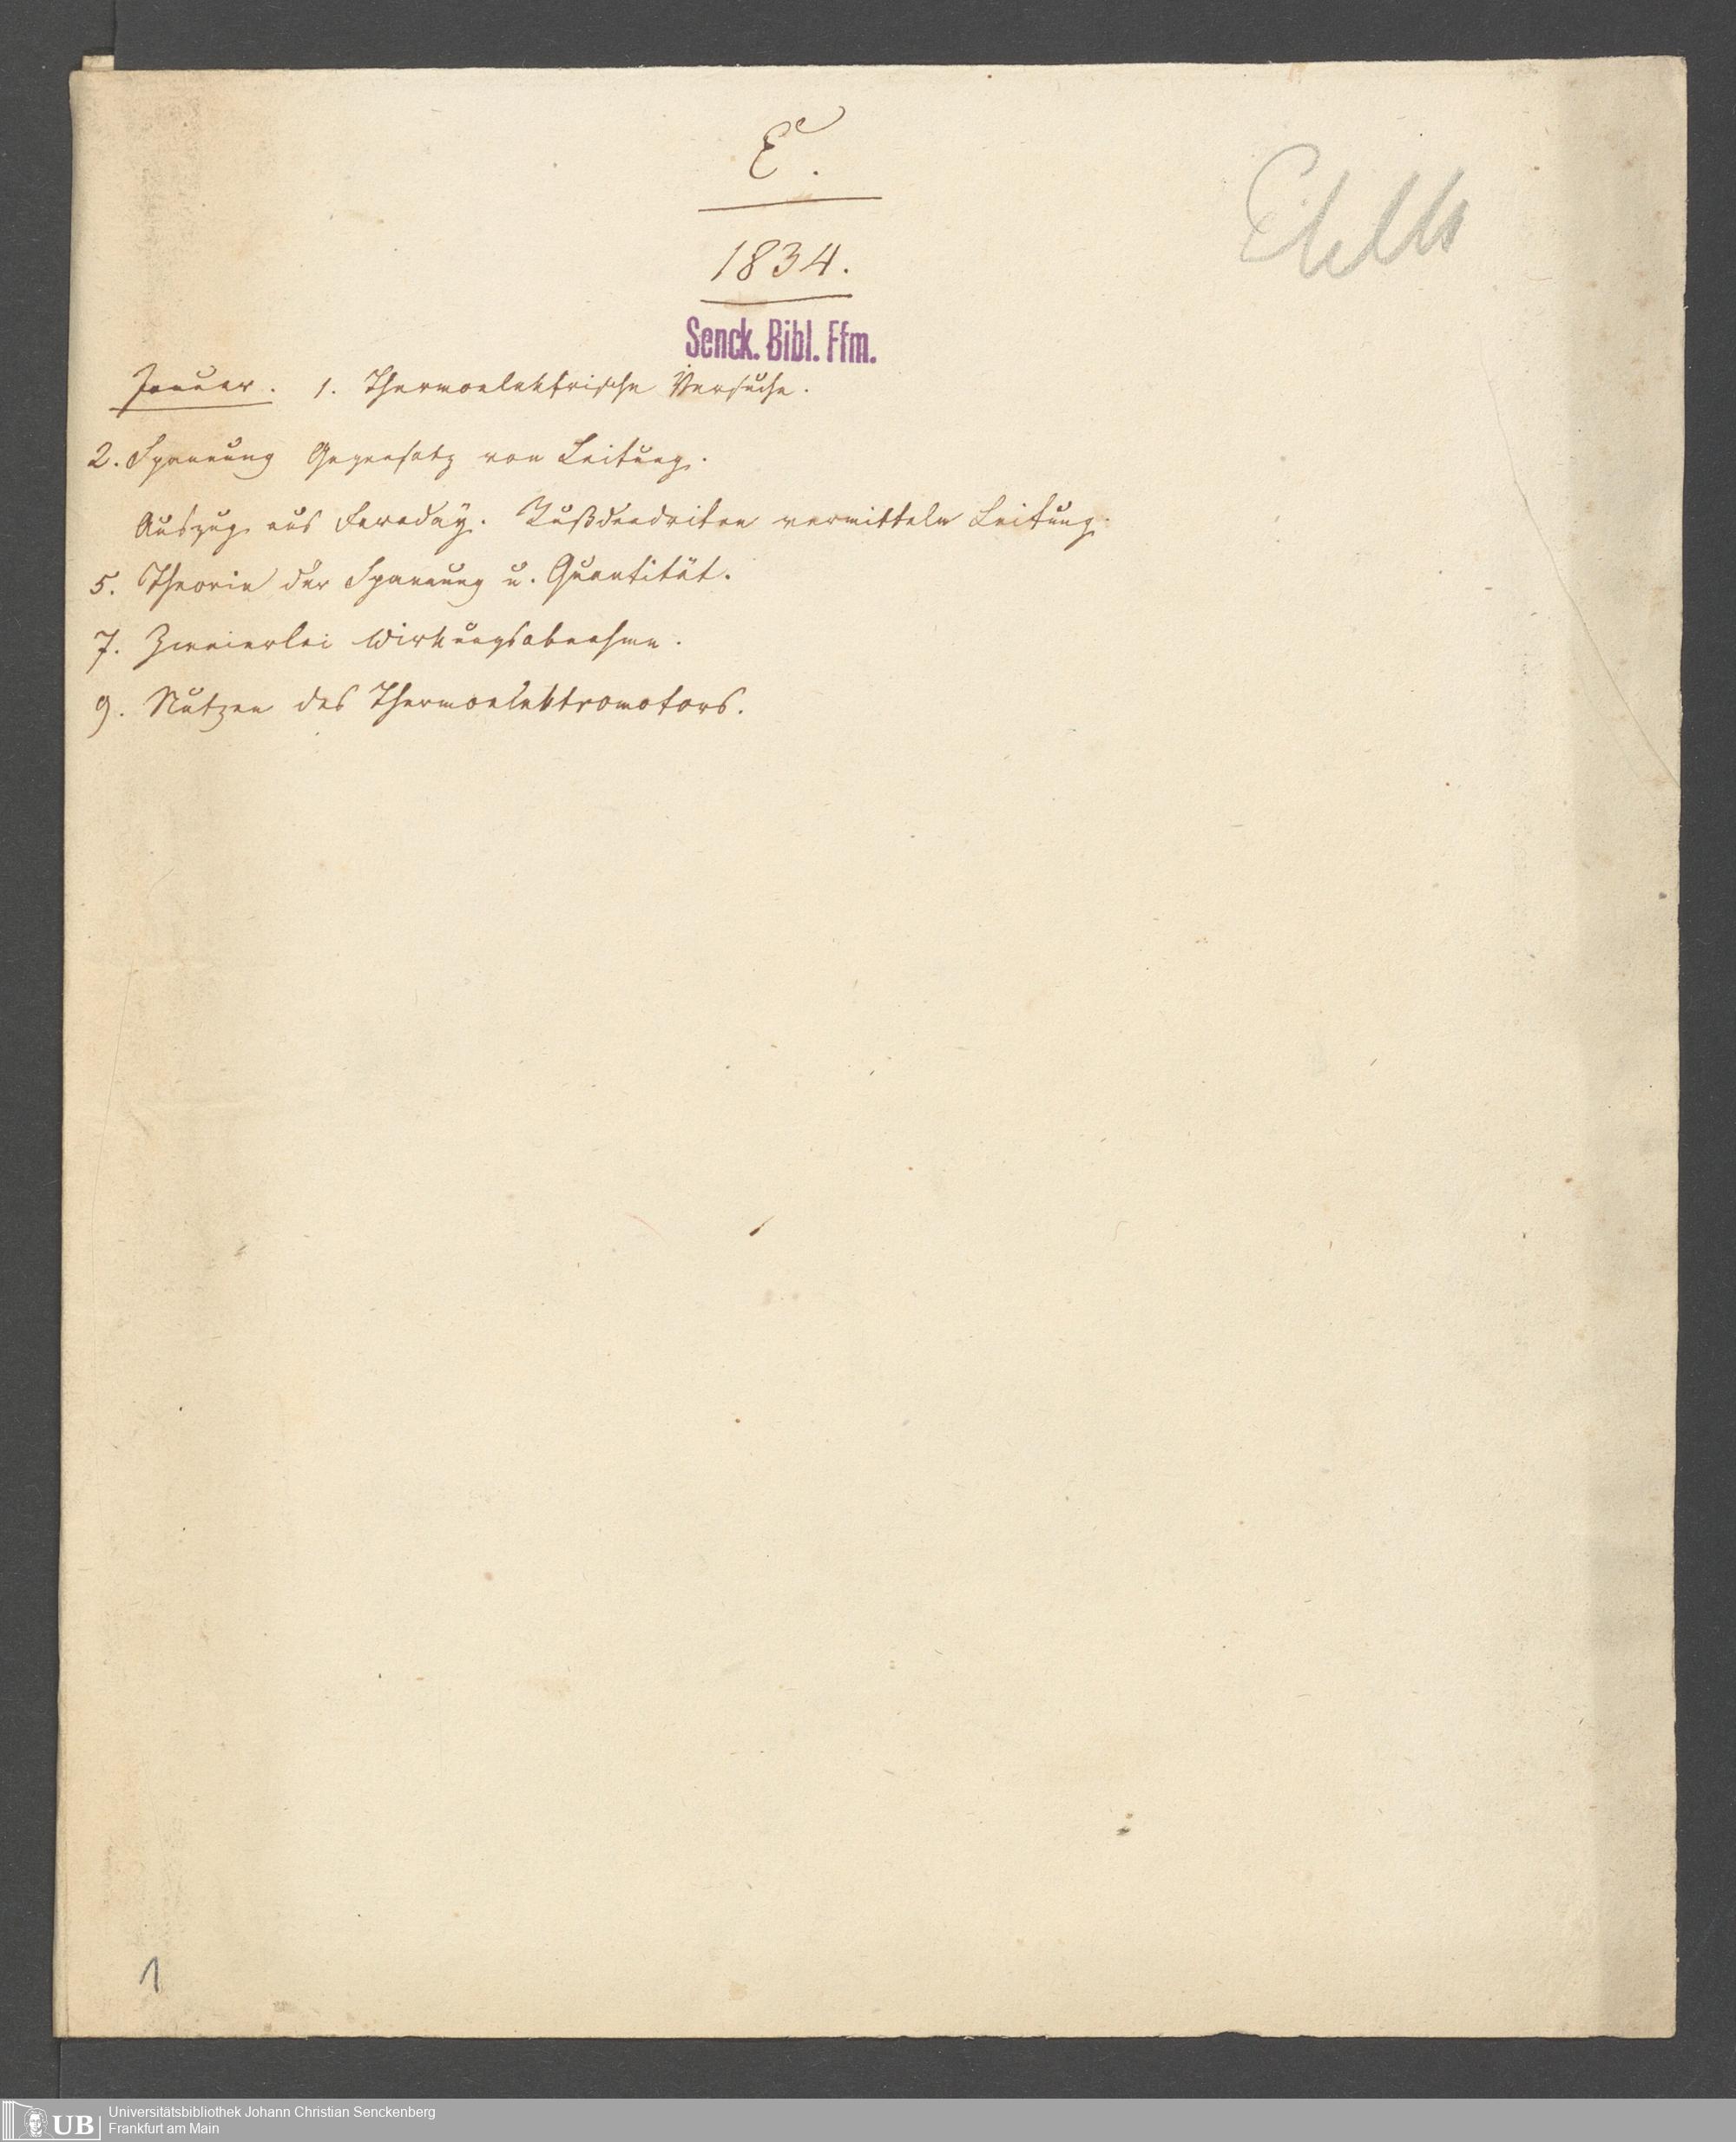 E.
1834.
Senck. Bibl. Ffm.
Januar. 1. Thermoelektrische Versuche.
2. Spannung Gegensatz von Leitung.
Auszug aus Faraday. Rußdendriten vermitteln Leitung.
5. Theorie der Spannung u. Quantität.
7. Zweierlei Wirkungsabnahme.
9. Nutzen des Thermoelektromotors.
1
UB
Universitätsbibliothek Johann Christian Senckenberg
Frankfurt am Main